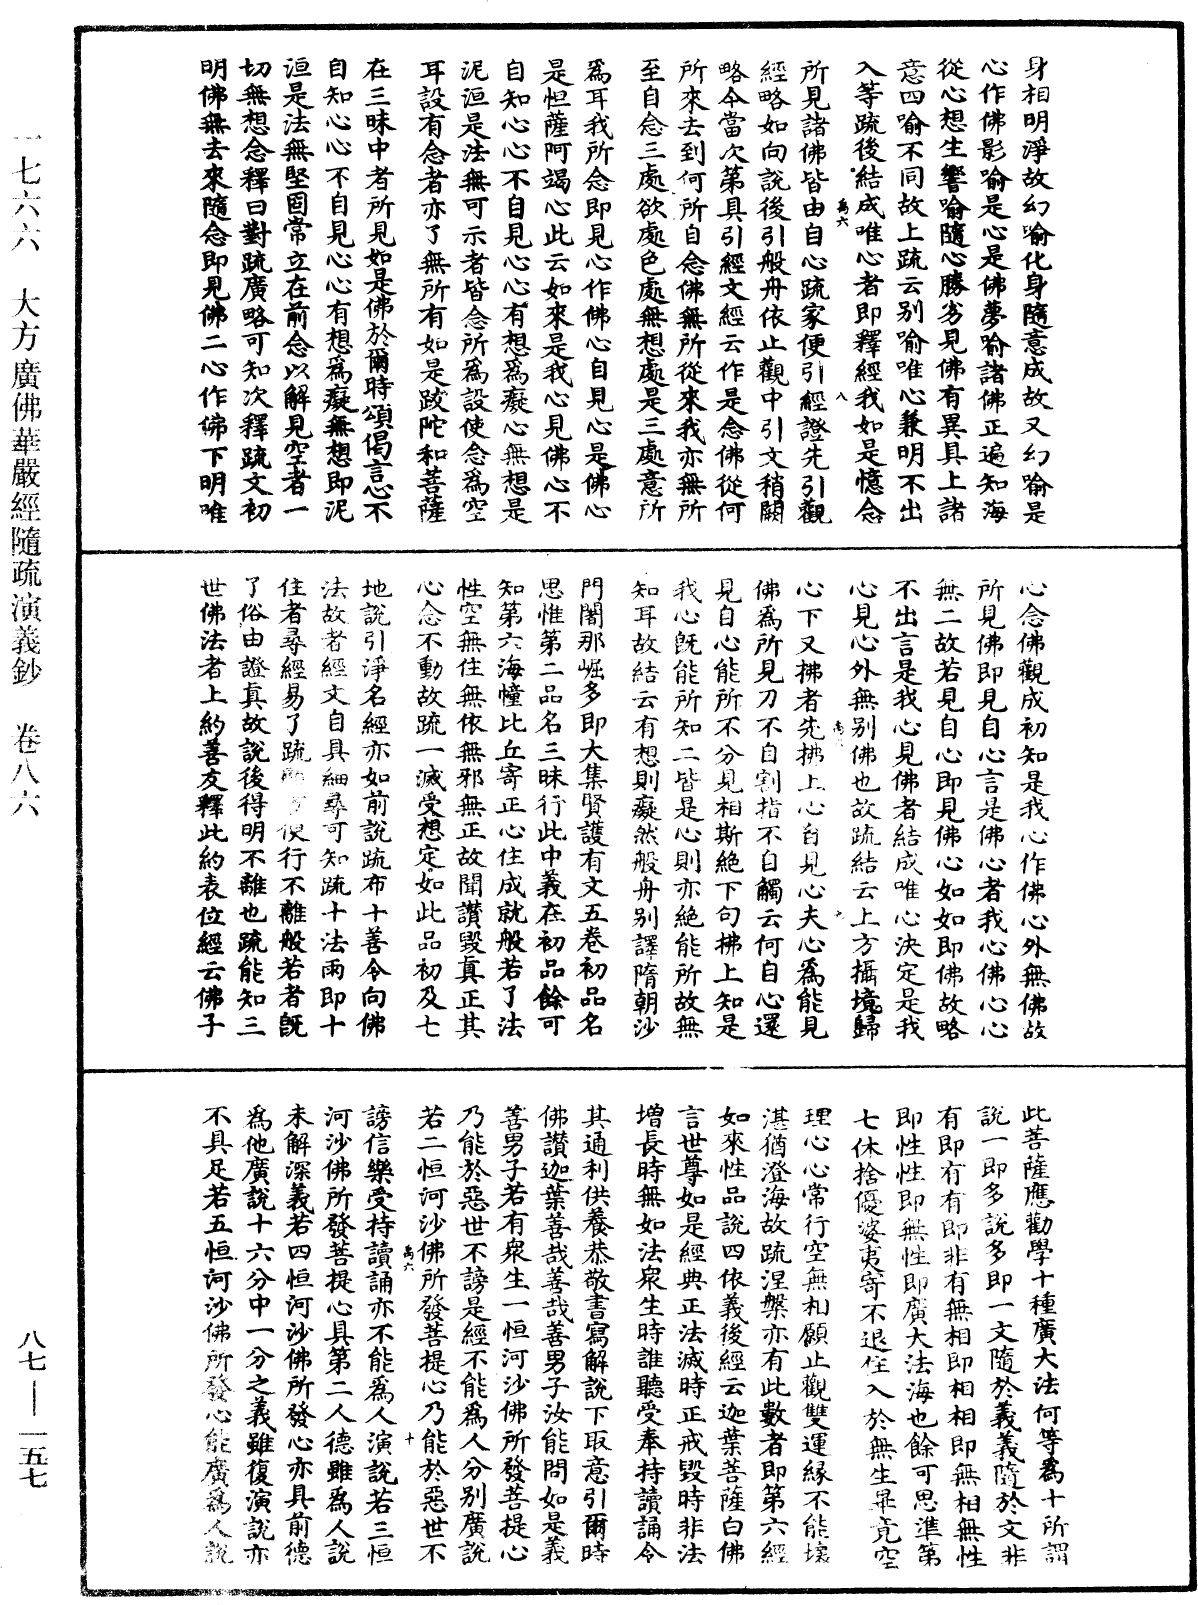 一七六六　大方廣佛華嚴經隨疏演義鈔　卷八六
八七—一五七
身相明淨故幻喻化身隨意成故又幻喻是
心作佛影喻是心是佛夢喻諸佛正遍知海
從心想生響喻隨心勝劣見佛有異具上諸
意四喻不同故上疏云别喻唯心兼明不出
入等疏後結成唯心者即釋經我如是憶念
所見諸佛皆由自心疏家便引經證先引觀
經略如向說後引般舟依止觀中引文稍闕
略今當次第具引經文經云作是念佛從何
所來去到何所自念佛無所從來我亦無所
至自念三處欲處色處無想處是三處意所
為耳我所念即見心作佛心自見心是佛心
是怛薩阿竭心此云如來是我心見佛心不
自知心心不自見心心有想為癡心無想是
泥洹是法無可示者皆念所為設使念為空
耳設有念者亦了無所有如是跋陀和菩薩
在三昧中者所見如是佛於爾時頌偈言心不
自知心心不自見心心有想為癡無想即泥
洹是法無堅固常立在前念以解見空者一
切無想念釋曰對疏廣略可知次釋疏文初
明佛無去來隨念即見佛二心作佛下明唯
心念佛觀成初知是我心作佛心外無佛故
所見佛即見自心言是佛心者我心佛心心
無二故若見自心即見佛心如如即佛故略
不出言是我心見佛者結成唯心決定是我
心見心外無别佛也故疏結云上方攝境歸
心下又拂者先拂上心自見心夫心為能見
佛為所見刀不自割指不自觸云何自心還
見自心能所不分見相斯絕下句拂上知是
我心既能所知二皆是心則亦絕能所故無
知耳故結云有想則癡然般舟别譯隋朝沙
門闍那崛多即大集賢護有文五卷初品名
思惟第二品名三昧行此中義在初品餘可
知第六海幢比丘寄正心住成就般若了法
性空無住無依無邪無正故聞讚毀真正其
心念不動故疏一滅受想定如此品初及七
地說引淨名經亦如前說疏布十善令向佛
法故者經文自具細尋可知疏十法雨即十
住者尋經易了疏便行不離般若者既
了俗由證真故說後得明不離也疏能知三
世佛法者上約善友釋此約表位經云佛子
此菩薩應勸學十種廣大法何等為十所謂
說一即多說多即一文隨於義義隨於文非
有即有有即非有無相即相相即無相無性
即性性即無性即廣大法海也餘可思準第
七休捨優婆夷寄不退住入於無生畢竟空
理心心常行空無相願止觀雙運緣不能壞
湛猶澄海故疏涅槃亦有此數者即第六經
如來性品說四依義後經云迦葉菩薩白佛
言世尊如是經典正法滅時正戒毀時非法
增長時無如法眾生時誰聽受奉持讀誦令
其通利供養恭敬書寫解說下取意引爾時
佛讚迦葉善哉善哉善男子汝能問如是義
善男子若有眾生一恒河沙佛所發菩提心
乃能於惡世不謗是經不能為人分别廣說
若二恒河沙佛所發菩提心乃能於惡世不
謗信樂受持讀誦亦不能為人演說若三恒
河沙佛所發菩提心具第二人德雖為人說
未解深義若四恒河沙佛所發心亦具前德
為他廣說十六分中一分之義雖復演說亦
不具足若五恒河沙佛所發心能廣為人說